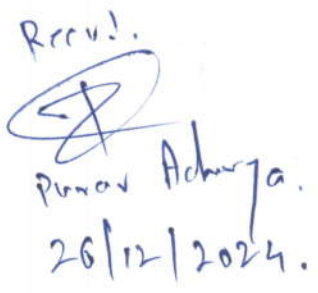 Recvd.
Purav Acharya.
26/12/2024.